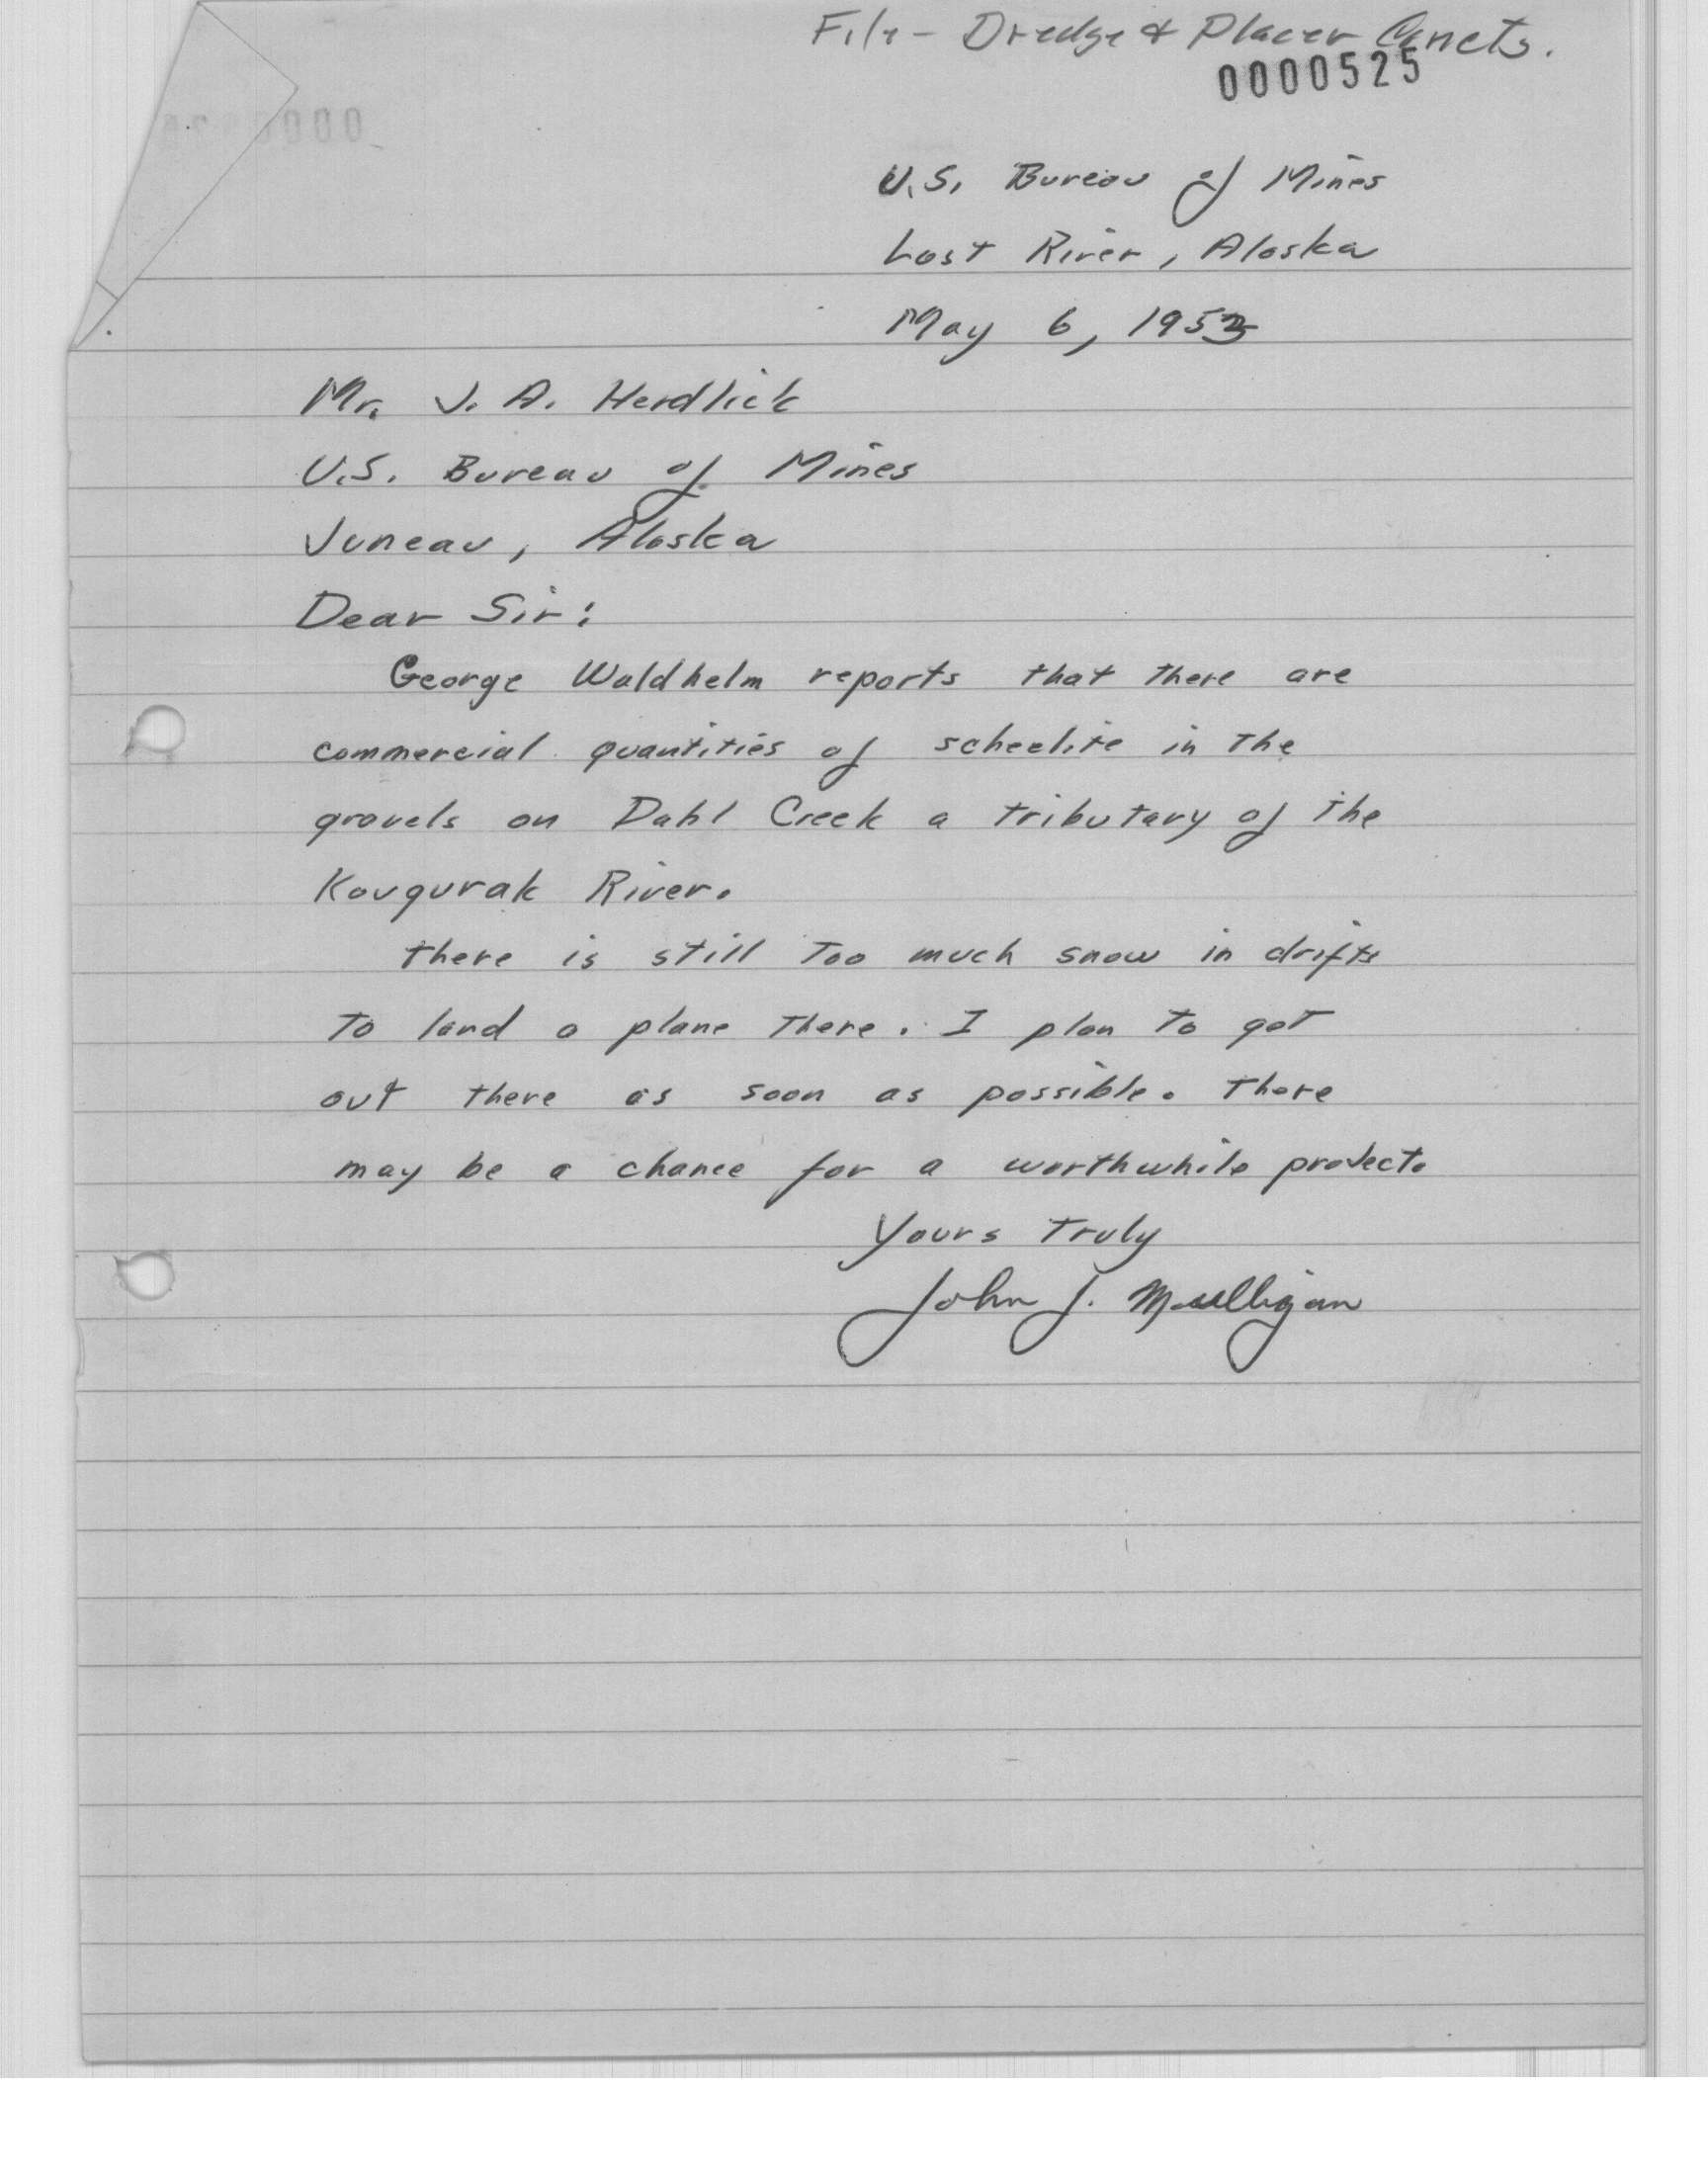 File - Dredge & Placer Cncts.
0000525
U.S. Bureau of Mines
Lost River, Alaska
May 6, 1953
Mr. J. A. Herdlick
U.S. Bureau of Mines
Juneau, Alaska
Dear Sir:
George Waldhelm reports that there are
commercial quantities of scheelite in the
gravels on Dahl Creek a tributary of the
Kougurak River.
There is still too much snow in drifts
to land a plane there. I plan to get
out there as soon as possible. There
may be a chance for a worthwhile project.
Yours truly
John J. Mulligan